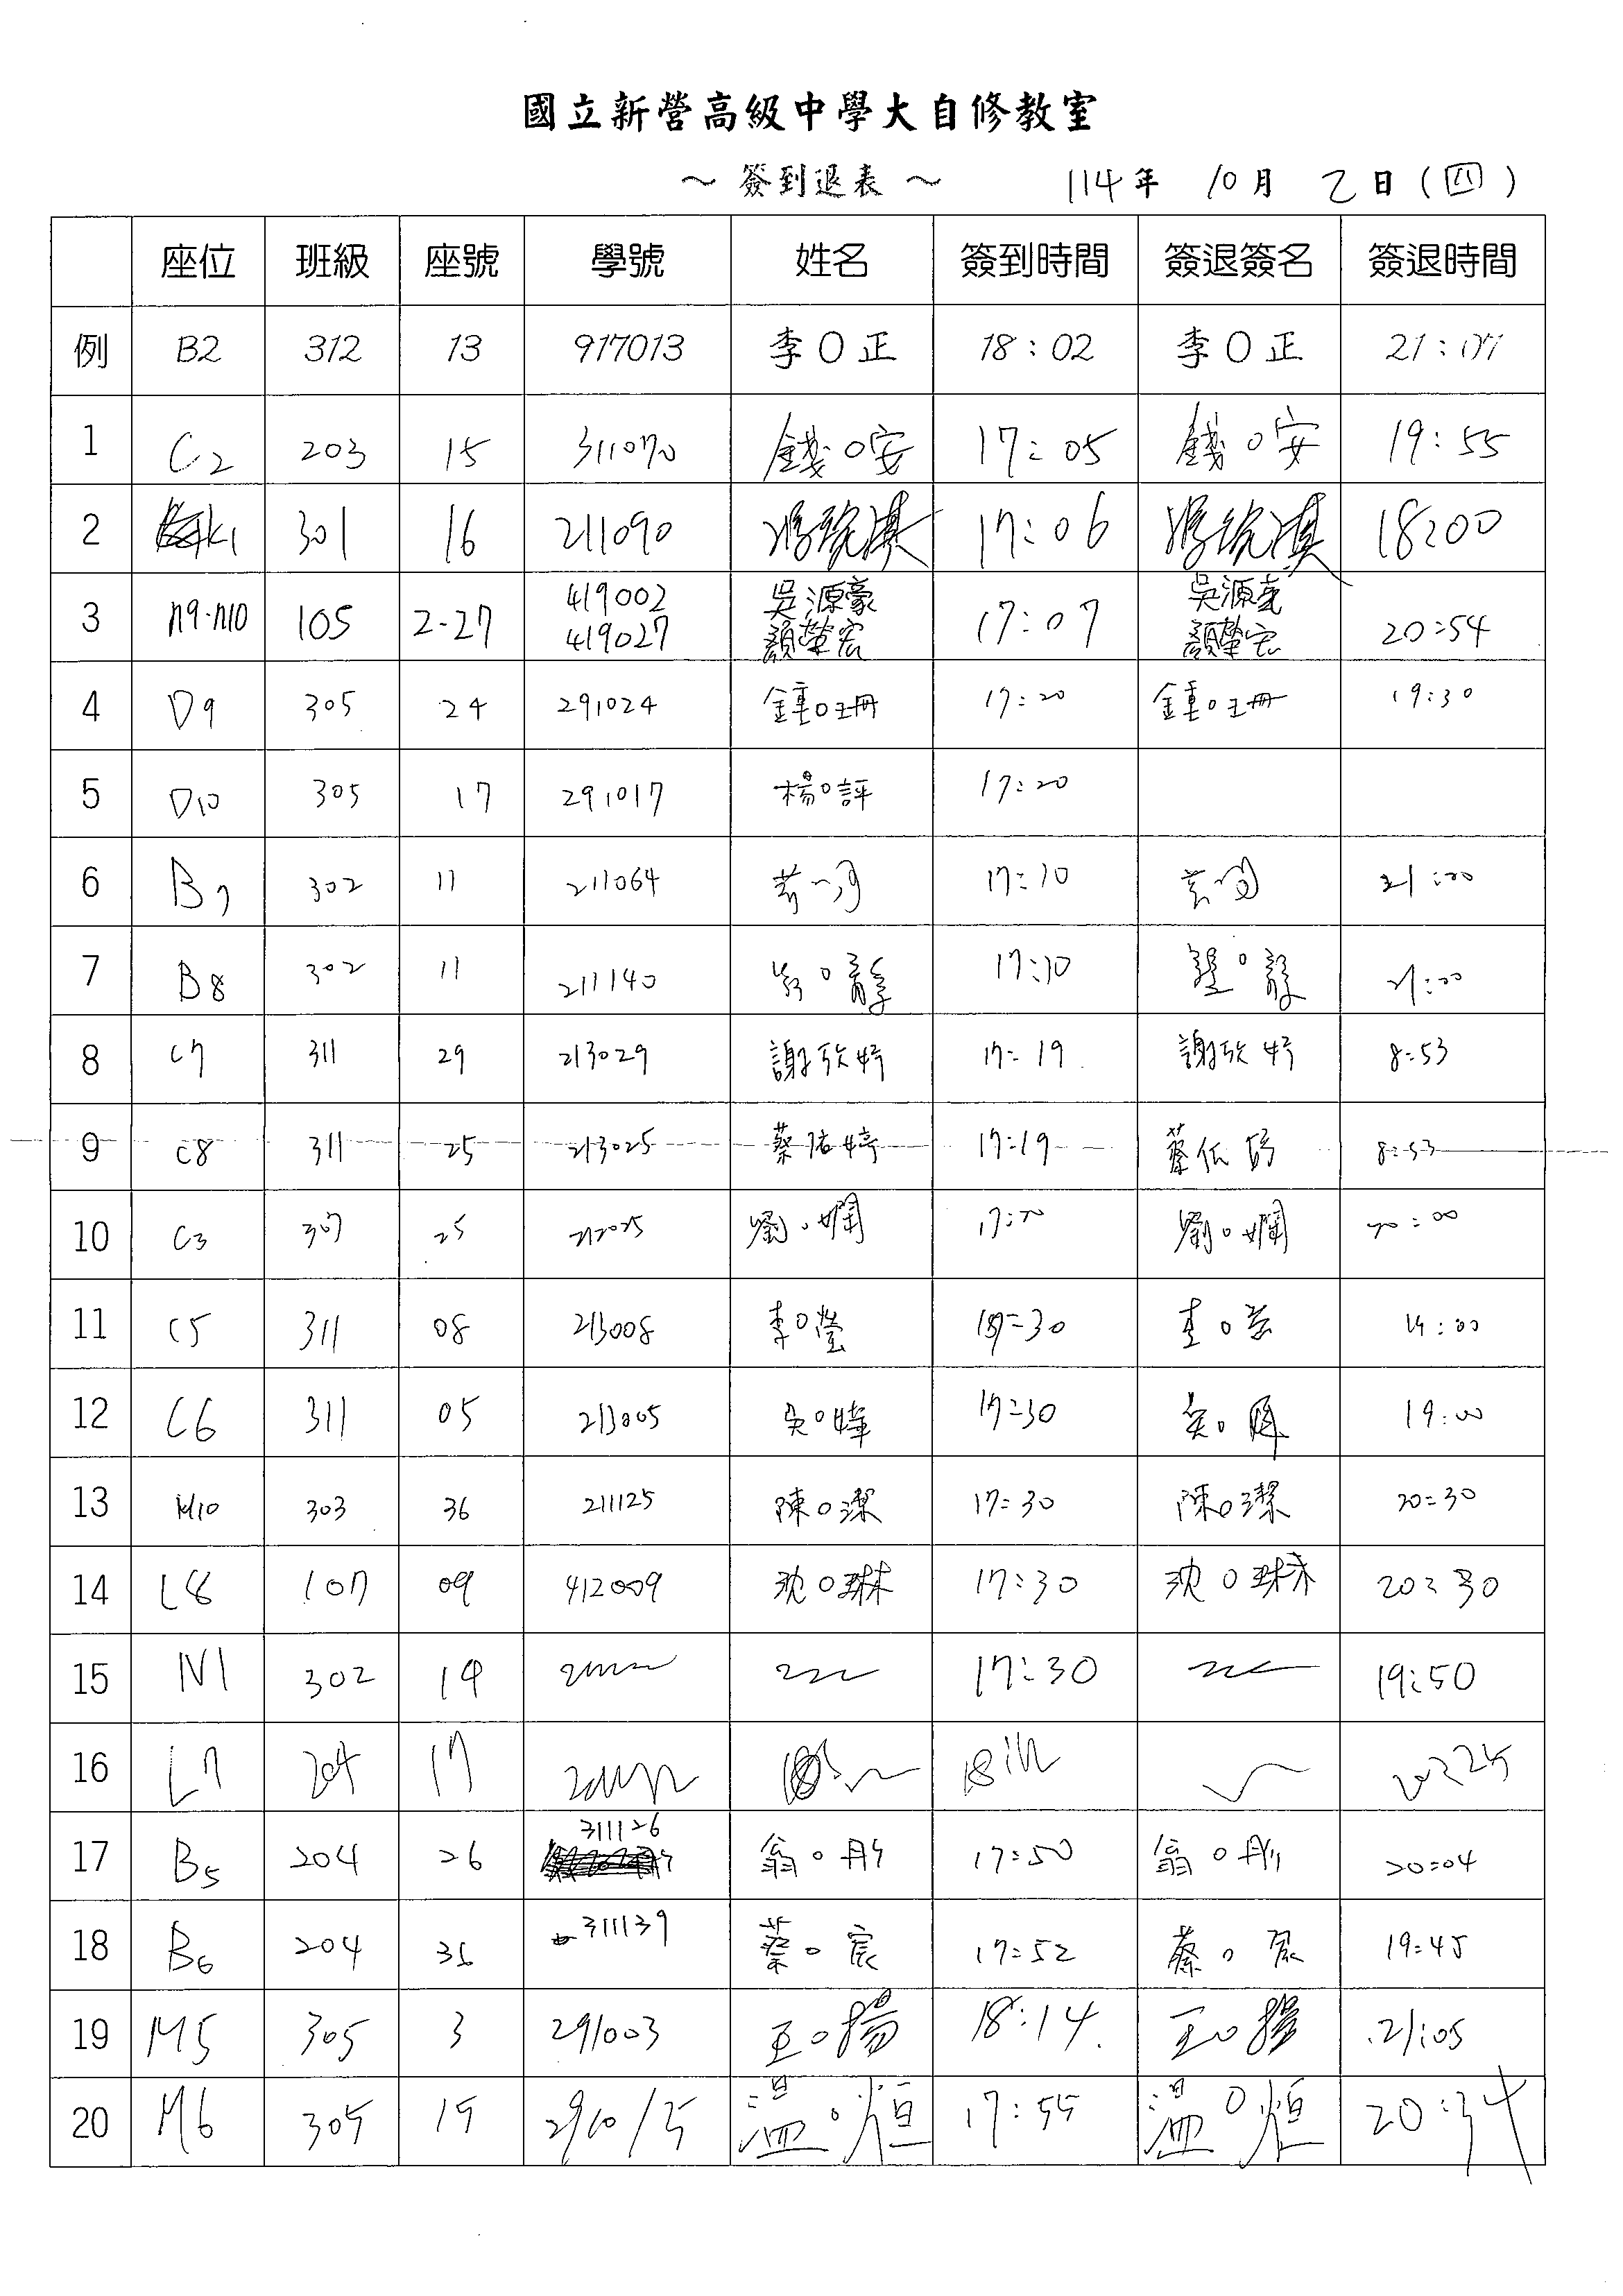 國立新營高級中學大自修教室
～ 簽到退表 ～ 114年 10月 2日(四)
座位 班級 座號 學號 姓名 簽到時間 簽退簽名 簽退時間
例 B2 312 13 917013 李O正 18:02 李O正 21:07
1 C2 203 15 311070 錢O安 17:05 錢O安 19:55
2 K1 301 16 211090 17:06 18:00
3 n9.n10 105 2.27 419002 吳源豪 17:07 吳源豪 20:54
419027 顏榮宏 顏榮宏
4 D9 305 24 291024 鍾O珊 17:20 鍾O珊 19:30
5 D10 305 17 291017 楊O評 17:20
6 B7 302 11 211064 17:10 21:00
7 B8 302 11 211140 17:10 21:00
8 C7 311 29 213029 謝欣妤 17:19 謝欣妤 8:53
9 C8 311 25 213025 蔡 17:19 蔡 8:53
10 C3 307 25 212025 劉O嫻 17:20 劉O嫻 20:00
11 C5 311 08 213008 李O瑩 17:30 李O 19:00
12 C6 311 05 213005 吳O 17:30 吳O 19:00
13 M10 303 36 211125 陳O潔 17:30 陳O潔 20:30
14 L8 107 09 412009 沈O琳 17:30 沈O琳 20:30
15 N1 302 19 17:30 19:50
16 L7 204 17 20:25
17 B5 204 26 311126 翁O彤 17:50 翁O彤 20:04
18 B6 204 35 311139 蔡O宸 17:52 蔡O宸 19:45
19 M5 305 3 291003 王O揚 18:14 王O揚 21:05
20 M6 305 15 291015 溫O烜 17:55 溫O烜 20:34